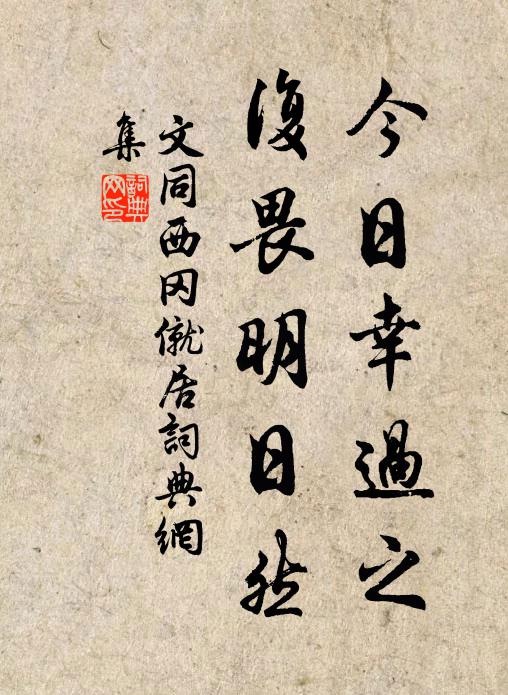 今日幸過之
復畏明日然
文同西冈僦居詞典網
集
詞典
网印